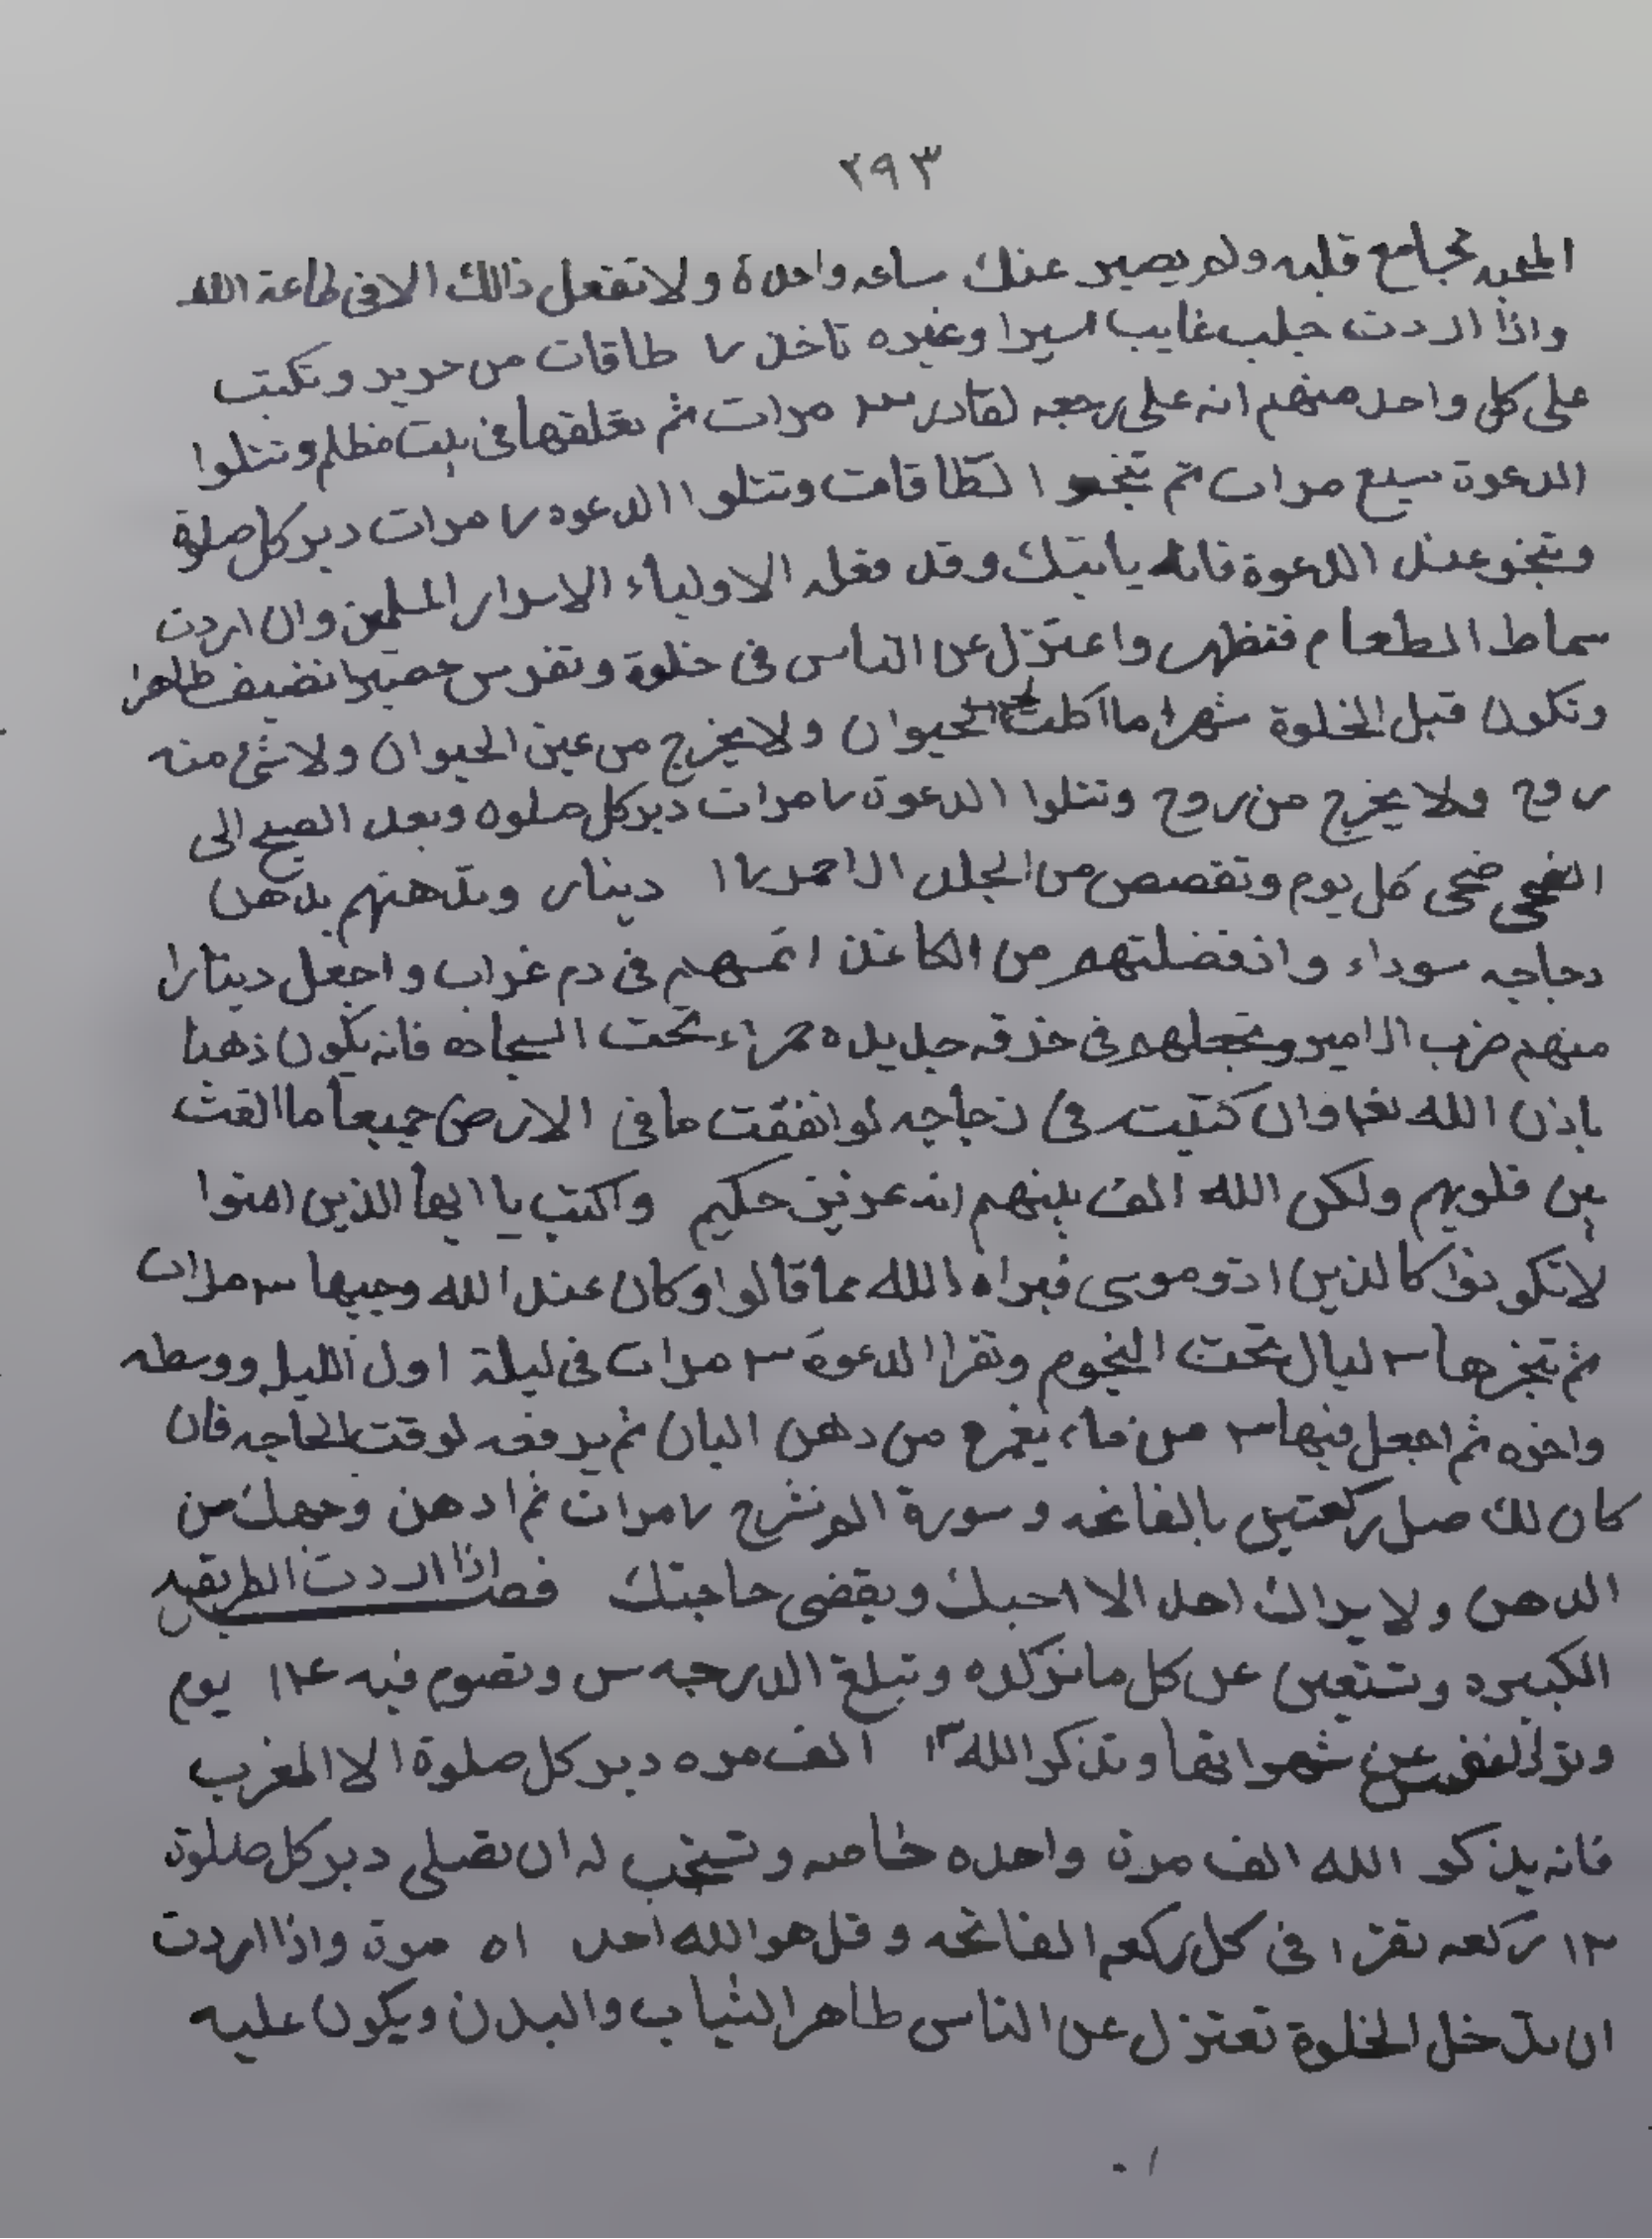 ٢٩٣
المحبه بمجامع قلبه ولم يصبر عنك ساعه واحدة ولا تفعل ذالك الا فى طاعة الله
واذا اردت جلب غايب اسيرا وغيره تاخذ ٧ طاقات من حرير وتكتب
على كل واحد منهم انه على رجعه لقادر ٣ مرات ثم تعلقها فى بيت مظلم وتتلوا
الدعوة سبع مرات ثم تبخر الطاقات وتتلوا الدعوه ٧ مرات دبر كل صلوة
وتبخر عند الدعوة فانه ياتيك وقد فعله الاولياء الاسرار وان اردت
سماط الطعام فتطهر واعتزل عن الناس فى خلوة وتفرس حصيرا نضيف طاهرا
وتكون قبل الخلوة شهرا ما اكلت لحم الحيوان ولا يخرج من عين الحيوان ولا شئ منه
روح ولا يخرج من روح وتتلوا الدعوة ٧ مرات دبر كل صلوه وبعد الصبح الى
الضحى ضحى كل يوم وتقصص من الجلد الاحمر ١٧ دينار وتدهنهم بدهن
دجاجه سوداء واذ فضلتهم من الكاغذ اغمسهم فى دم غراب واجعل دينارا
منهم ضرب الامير وتجعلهم فى خرقه جديده حمراء تحت السجاده فانه يكون ذهبا
باذن الله تعا وان كتبت فى زجاجه لو انفقت ما فى الارض جميعا ما الفت
بين قلوبهم ولكن الله الف بينهم انه عزيز حكيم واكتب يا ايها الذين امنوا
لا تكونوا كالذين اذو موسى فبراه الله مما قالوا وكان عند الله وجيها ٣ مرات
ثم تبخرها ٣ ليال تحت النجوم وتقرا الدعوة ٣ مرات فى ليلة اول الليل ووسطه
واخره ثم اجعل فيها ٣ من دهن البان ثم يرفعه لوقت الحاجه فان
كان لك صل ركعتين بالفاتحه وسورة الم نشرح ٧ مرات ثم ادهن وجهك من
الدهن ولا يراك احد الا احبك ويقضى حاجتك فصل اذا اردت الطريقه
الكبيره وتستعين عن كل ما تزكده وتبلغ الدرجه س وتصوم فيه ١٢٤ يوم
وترد لنفس عن شهواتها وتذكر الله ١٣ الف مره دبر كل صلوة الا المغرب
فانه يذكر الله الف مرة واحده خاصه وتستحب له ان تصلى دبر كل صلوة
١٣ ركعه تقرا فى كل ركعه الفاتحه وقل هو الله احد ١٥ مرة واذا اردت
ان تدخل الخلوة تعتزل عن الناس طاهر الثياب والبدن ويكون عليه